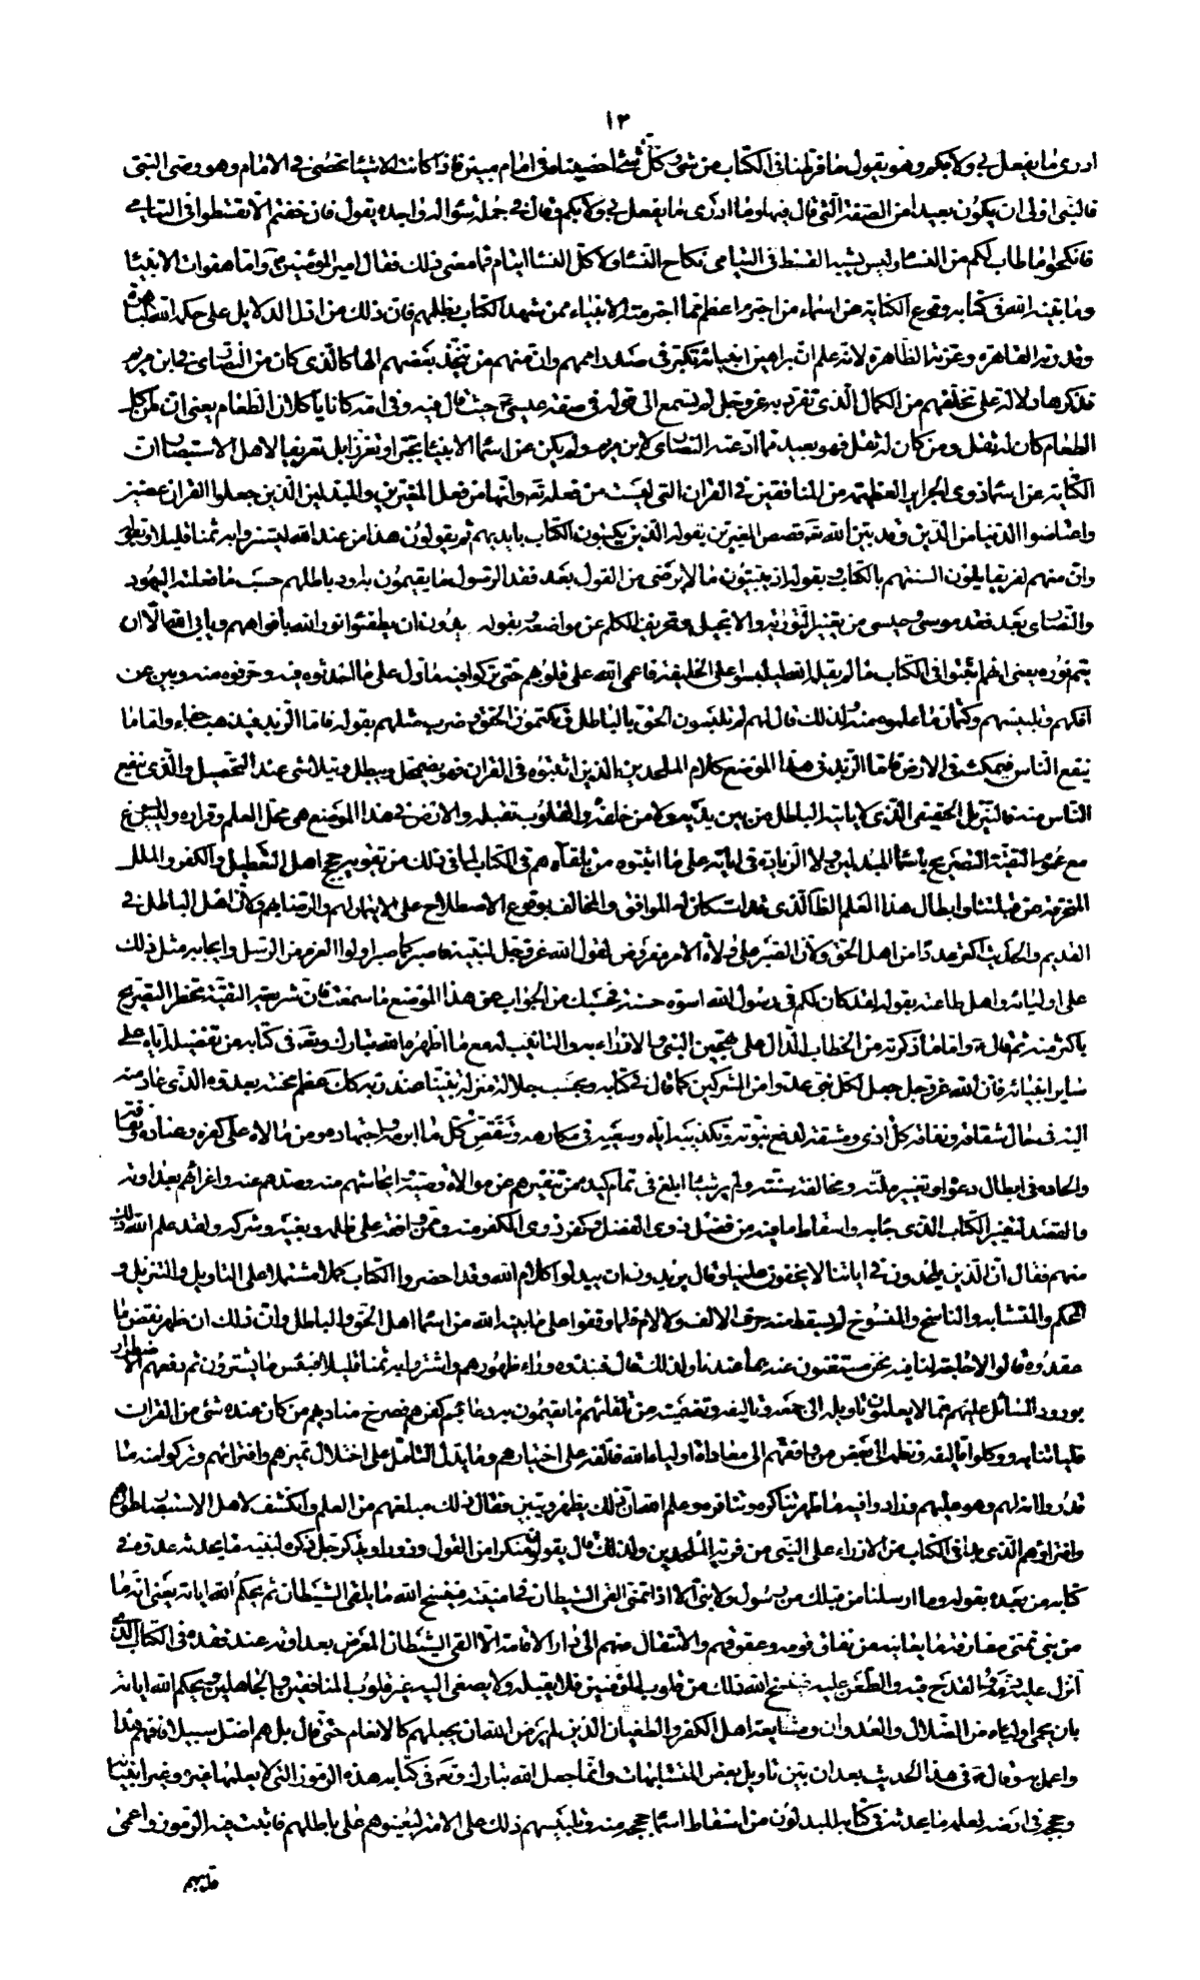 ١٣
ادرى ما يفعل بي ولا بكم وهو يقول ما فرطنا في الكتاب من شئ وكل شئ احصيناه في امام مبين فاذا كانت الاشياء تحصى في الامام وهو وصى النبي
فالنبي اولى ان يكون بعيدا من الصفة التي قال فيها وما ادرى ما يفعل بي ولا بكم وقال في جملة سؤاله واجده يقول فان خفتم الا تقسطوا في اليتامى
فانكحوا ما طاب لكم من النساء وليس يشبه القسط في اليتامى نكاح النساء ولا كل النساء ايتام فما معنى ذلك فقال امير المؤمنين واما هفوات الانبياء
وما بينه الله في كتابه ووقوع الكناية من اسماء من اجترم اعظم مما اجترمته الانبياء ممن شهد الكتاب بظلمهم فان ذلك من ادل الدلايل على حكمة الله الباهرة
وقدرته القاهرة وعزته الظاهرة لانه علم ان براهين انبيائه تكبر في صدور اممهم وان منهم من يتخذ بعضهم الها كالذى كان من النصارى في ابن مريم
فذكرها دلالة على تخلفهم من الكمال الذى تفرد به عز وجل الم تسمع الى قوله في صفة عيسى حيث قال فيه وفي امه كانا ياكلان الطعام يعنى ان من اكل
الطعام كان له ثفل ومن كان له ثفل فهو بعيد مما ادعته النصارى لابن مريم ولم يكن عن اسماء الانبياء تجبرا وتعززا بل تعريفا لاهل الاستبصار ان
الكناية عن اسماء ذوى الجراير العظيمة من المنافقين في القران التي ليست من فعله تعه وانها من فعل المغيرين والمبدلين الذين جعلوا القران عضين
واعتاضوا الدنيا من الدين وقد بين الله تعه قصص المغيرين بقوله الذين يكتبون الكتاب بايديهم ثم يقولون هذا من عند الله ليشتروا به ثمنا قليلا وبقوله
وان منهم لفريقا يلون السنتهم بالكتاب وبقوله اذ يبيتون ما لا يرضى من القول بعد فقد الرسول ما يقيمون به اود باطلهم حسب ما فعلته اليهود
والنصارى بعد فقد موسى وعيسى من تغيير التورية والانجيل وتحريف الكلم عن مواضعه وبقوله يريدون ان يطفئوا نور الله بافواههم ويابى الله الا ان
يتم نوره يعنى انهم اثبتوا في الكتاب ما لم يقله الله ليلبسوا على الخليقة فاعمى الله على قلوبهم حتى تركوا فيه ما دل على ما احدثوه فيه وحرفوه منه وبين عن
افكهم وتلبيسهم وكتمان ما علموه منه ولذلك قال لهم لم تلبسون الحق بالباطل وتكتمون الحق وضرب مثلهم بقوله فاما الزبد فيذهب جفاء واما ما
ينفع الناس فيمكث في الارض فاما الزبد في هذا الموضع كلام الملحدين الذين اثبتوه في القران فهو يضمحل ويبطل ويتلاشى عند التحصيل والذى ينفع
الناس منه فالتنزيل الحقيقى الذى لا ياتيه الباطل من بين يديه ولا من خلفه والقلوب تقبله والارض في هذا الموضع هى محل العلم وقراره وليس يسوغ
مع عموم التقية التصريح باسماء المبدلين ولا الزيادة في اياته على ما اثبتوه من تلقائهم في الكتاب لما في ذلك من تقوية حجج اهل التعطيل والكفر والملل
المنحرفة من قبلتنا وابطال هذا العلم الظاهر الذى قد استكان له الموافق والمخالف بوقوع الاصطلاح على الايتمار لهم والرضا بهم ولان اهل الباطل في
القديم والحديث اكثر عددا من اهل الحق ولان الصبر على ولاة الامر مفروض لقول الله عز وجل لنبيه فاصبر كما صبر اولوا العزم من الرسل وايجابه مثل ذلك
على اوليائه واهل طاعته بقوله لقد كان لكم في رسول الله اسوة حسنة فحسبك من الجواب عن هذا الموضع ما سمعت فان شريعة التقية تحظر التصريح
باكثر منه ثم قال واما ما ذكرته من الخطاب الدال على تهجين النبي والازراء به والتانيب له مع ما اظهره الله تبارك وتعه في كتابه من تفضيله اياه على
ساير انبيائه فان الله عز وجل جعل لكل نبي عدوا من المشركين كما قال في كتابه وبحسب جلالة منزلة نبينا عند ربه كان عظم محنته بعدوه الذى عاد منه
اليه في حال شقاقه ونفاقه كل اذى ومشقة لدفع نبوته وتكذيبه اياه وسعيه في مكارهه وقصده لنقض كل ما ابرمه واجتهاده ومن مالاه على كفره وعناده ونفاقه
والحاده في ابطال دعواه وتغيير ملته ومخالفة سنته ولم ير شيئا ابلغ في تمام كيده من تنفيرهم عن موالاة وصيه وايحاشهم منه وصدهم عنه واغرائهم بعداوته
والقصد لتغيير الكتاب الذى جاء به واسقاط ما فيه من فضل ذوى الفضل وكفر ذوى الكفر منه وممن وافقه على ظلمه وبغيه وشركه ولقد علم الله ذلك
منهم فقال ان الذين يلحدون في اياتنا لا يخفون علينا وقال يريدون ان يبدلوا كلام الله وقد احضروا الكتاب كملا مشتملا على التاويل والتنزيل و
المحكم والمتشابه والناسخ والمنسوخ لم يسقط منه حرف الف ولا لام فلما وقفوا على ما بينه الله من اسماء اهل الحق والباطل وان ذلك ان ظهر نقض ما
عقدوه قالوا لا حاجة لنا فيه نحن مستغنون عنه بما عندنا ولذلك قال فنبذوه وراء ظهورهم واشتروا به ثمنا قليلا فبئس ما يشترون ثم دفعهم الاضطرار
بورود المسائل عليهم عما لا يعلمون تاويله الى جمعه وتاليفه وتضمينه من تلقائهم ما يقيمون به دعائم كفرهم فصرخ مناديهم من كان عنده شئ من القران
فلياتنا به ووكلوا تاليفه ونظمه الى بعض من وافقهم الى معاداة اولياء الله فالفه على اختيارهم وما يدل للتامل على اختلال تميزهم وافترائهم وتركوا منه ما
قدروا انه لهم وهو عليهم وزادوا فيه ما ظهر تناكره وتنافره وعلم الله ان ذلك يظهر ويبين فقال ذلك مبلغهم من العلم وانكشف لاهل الاستبصار عوارهم
وافتراؤهم والذى بدا في الكتاب من الازراء على النبي من فرية الملحدين ولذلك قال يقولون منكرا من القول وزورا ويذكر جل ذكره لنبيه ما يحدثه عدوه في
كتابه من بعده بقوله وما ارسلنا من قبلك من رسول ولا نبي الا اذا تمنى القى الشيطان في امنيته فينسخ الله ما يلقى الشيطان ثم يحكم الله اياته يعنى انه ما
من نبي تمنى مفارقة ما يعانيه من نفاق قومه وعقوقهم والانتقال عنهم الى دار الاقامة الا القى الشيطان المعرض بعداوته عند فقده في الكتاب الذى
انزل عليه ذمه والقدح فيه والطعن عليه فينسخ الله ذلك من قلوب المؤمنين فلا تقبله ولا يصغى اليه غير قلوب المنافقين والجاهلين ويحكم الله اياته
بان يحمى اولياءه من الضلال والعدوان ومشايعة اهل الكفر والطغيان الذين لم يرض الله ان يجعلهم كالانعام حتى قال بل هم اضل سبيلا فافهم هذا
واعمل به وقال في هذا الحديث بعد ان بين تاويل بعض المتشابهات وانما جعل الله تبارك وتعه في كتابه هذه الرموز التي لا يعلمها غيره وغير انبيائه
وحججه في ارضه لعلمه ما يحدثه في كتابه المبدلون من اسقاط اسماء حججه منه وتلبيسهم ذلك على الامة ليعينوهم على باطلهم فاثبت فيه الرموز واعمى
قلوبهم